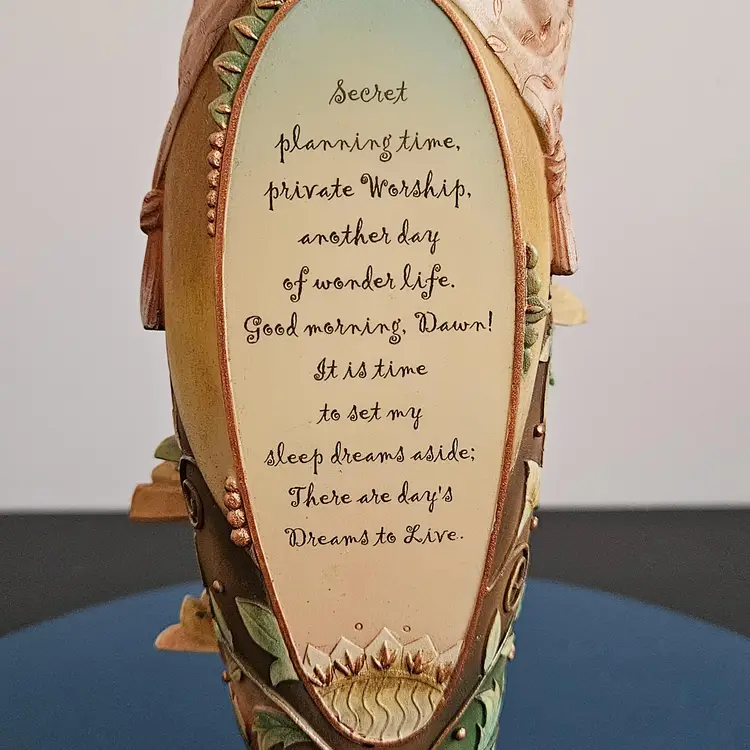 Secret
planning time,
private Worship,
another day
of wonder life.
Good morning, Dawn!
It is time
to set my
sleep dreams aside;
There are day's
Dreams to Live.